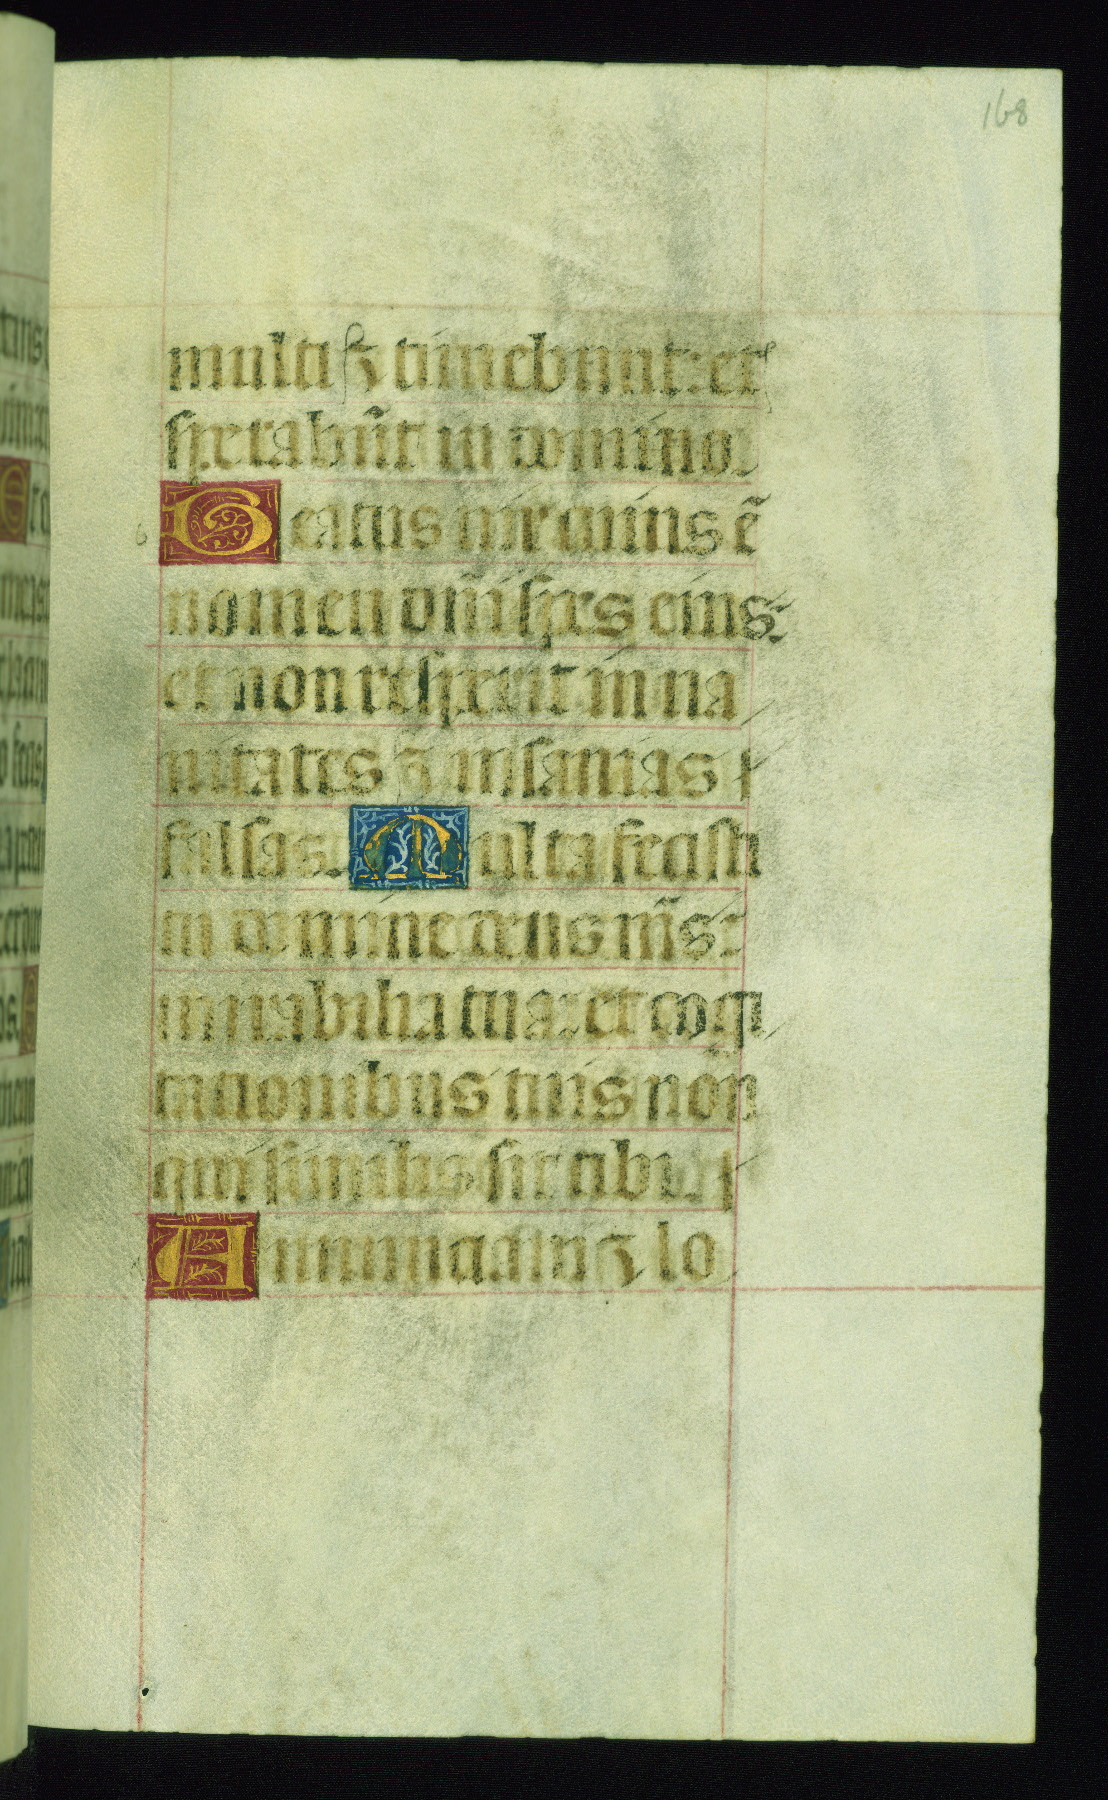 168
multi ⁊ timebunt: et
sperabūt in domino.
b Beatus vir cuius ē
nomen dn̄i spes eius:
et non respexit in va
nitates ⁊ insanias
falsas. Multa fecisti
tu domine deus m̄s:
mirabilia tua: et cogi
tationibus tuis non
qui similis sit tibi.
Annunciaui ⁊ lo